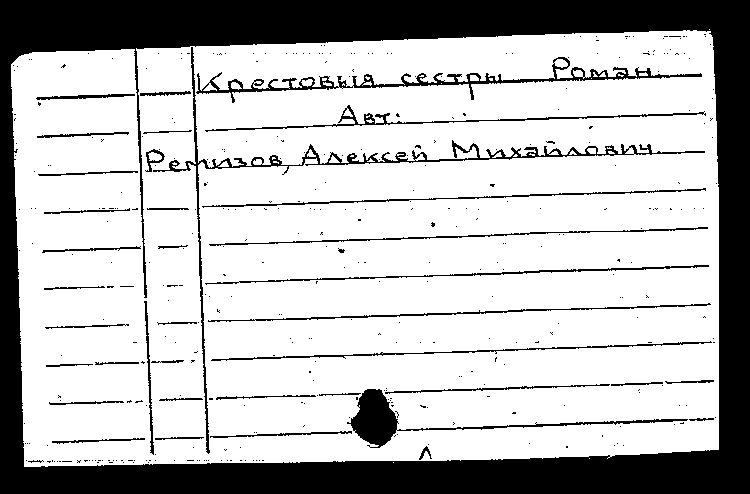 Крестовыя сестры Роман.
Авт:
Ремизов, Алексей Михайлович.